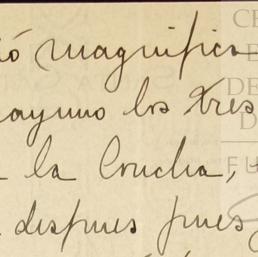 ió magnifico
ayuno los tres
a la Concha,
despues pues
CE
DE
D
FU